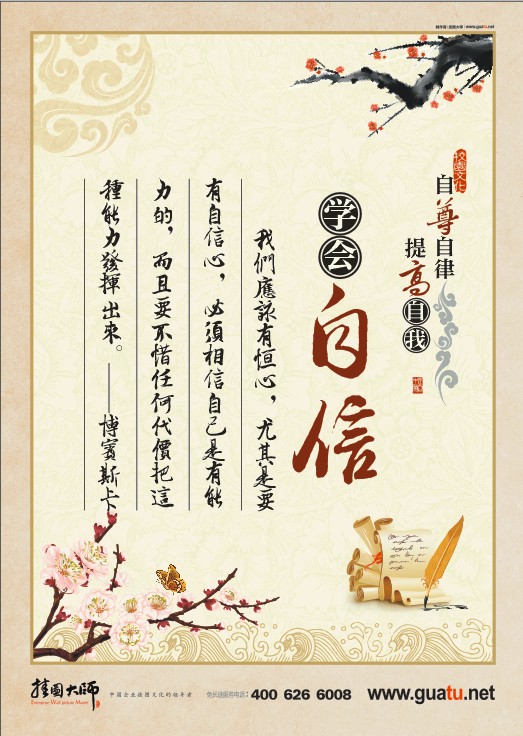 挂图大师 www.guatu.net
校园文化
自尊自律
提高自我
学会
自信
我們應該有恒心，尤其是要
有自信心，必須相信自己是有能
力的，而且要不惜任何代價把這
種能力發揮出來。——博賓斯卡
挂图大师
Enterprise Wall picture Master
中国企业挂图文化的领导者
免长途服务电话：400 626 6008
www.guatu.net